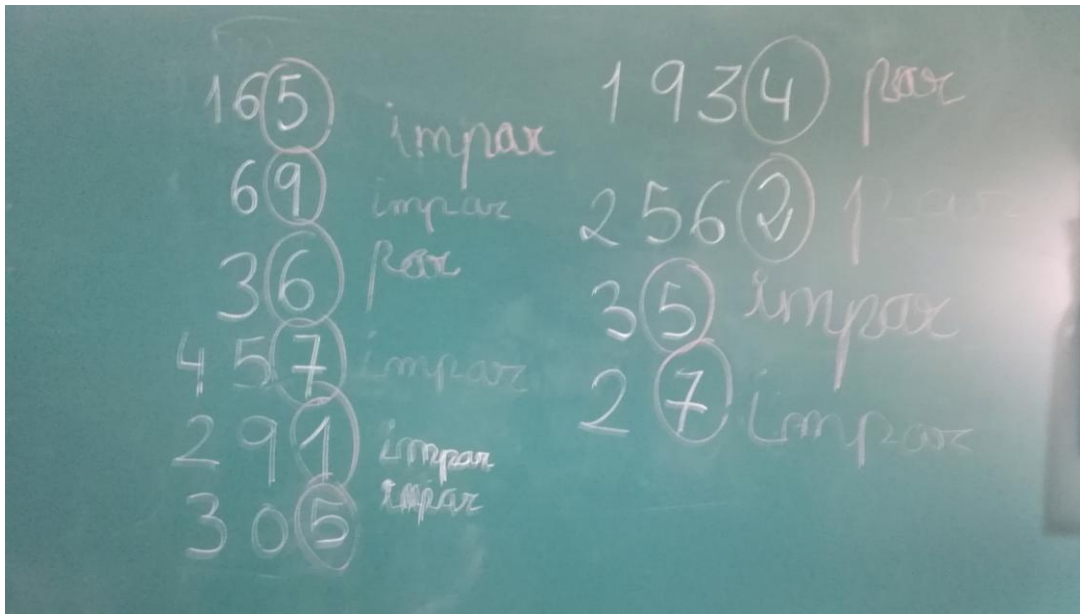 165 impar
69 impar
36 par
457 impar
291 impar
305 impar
1934 par
2562 par
35 impar
27 impar